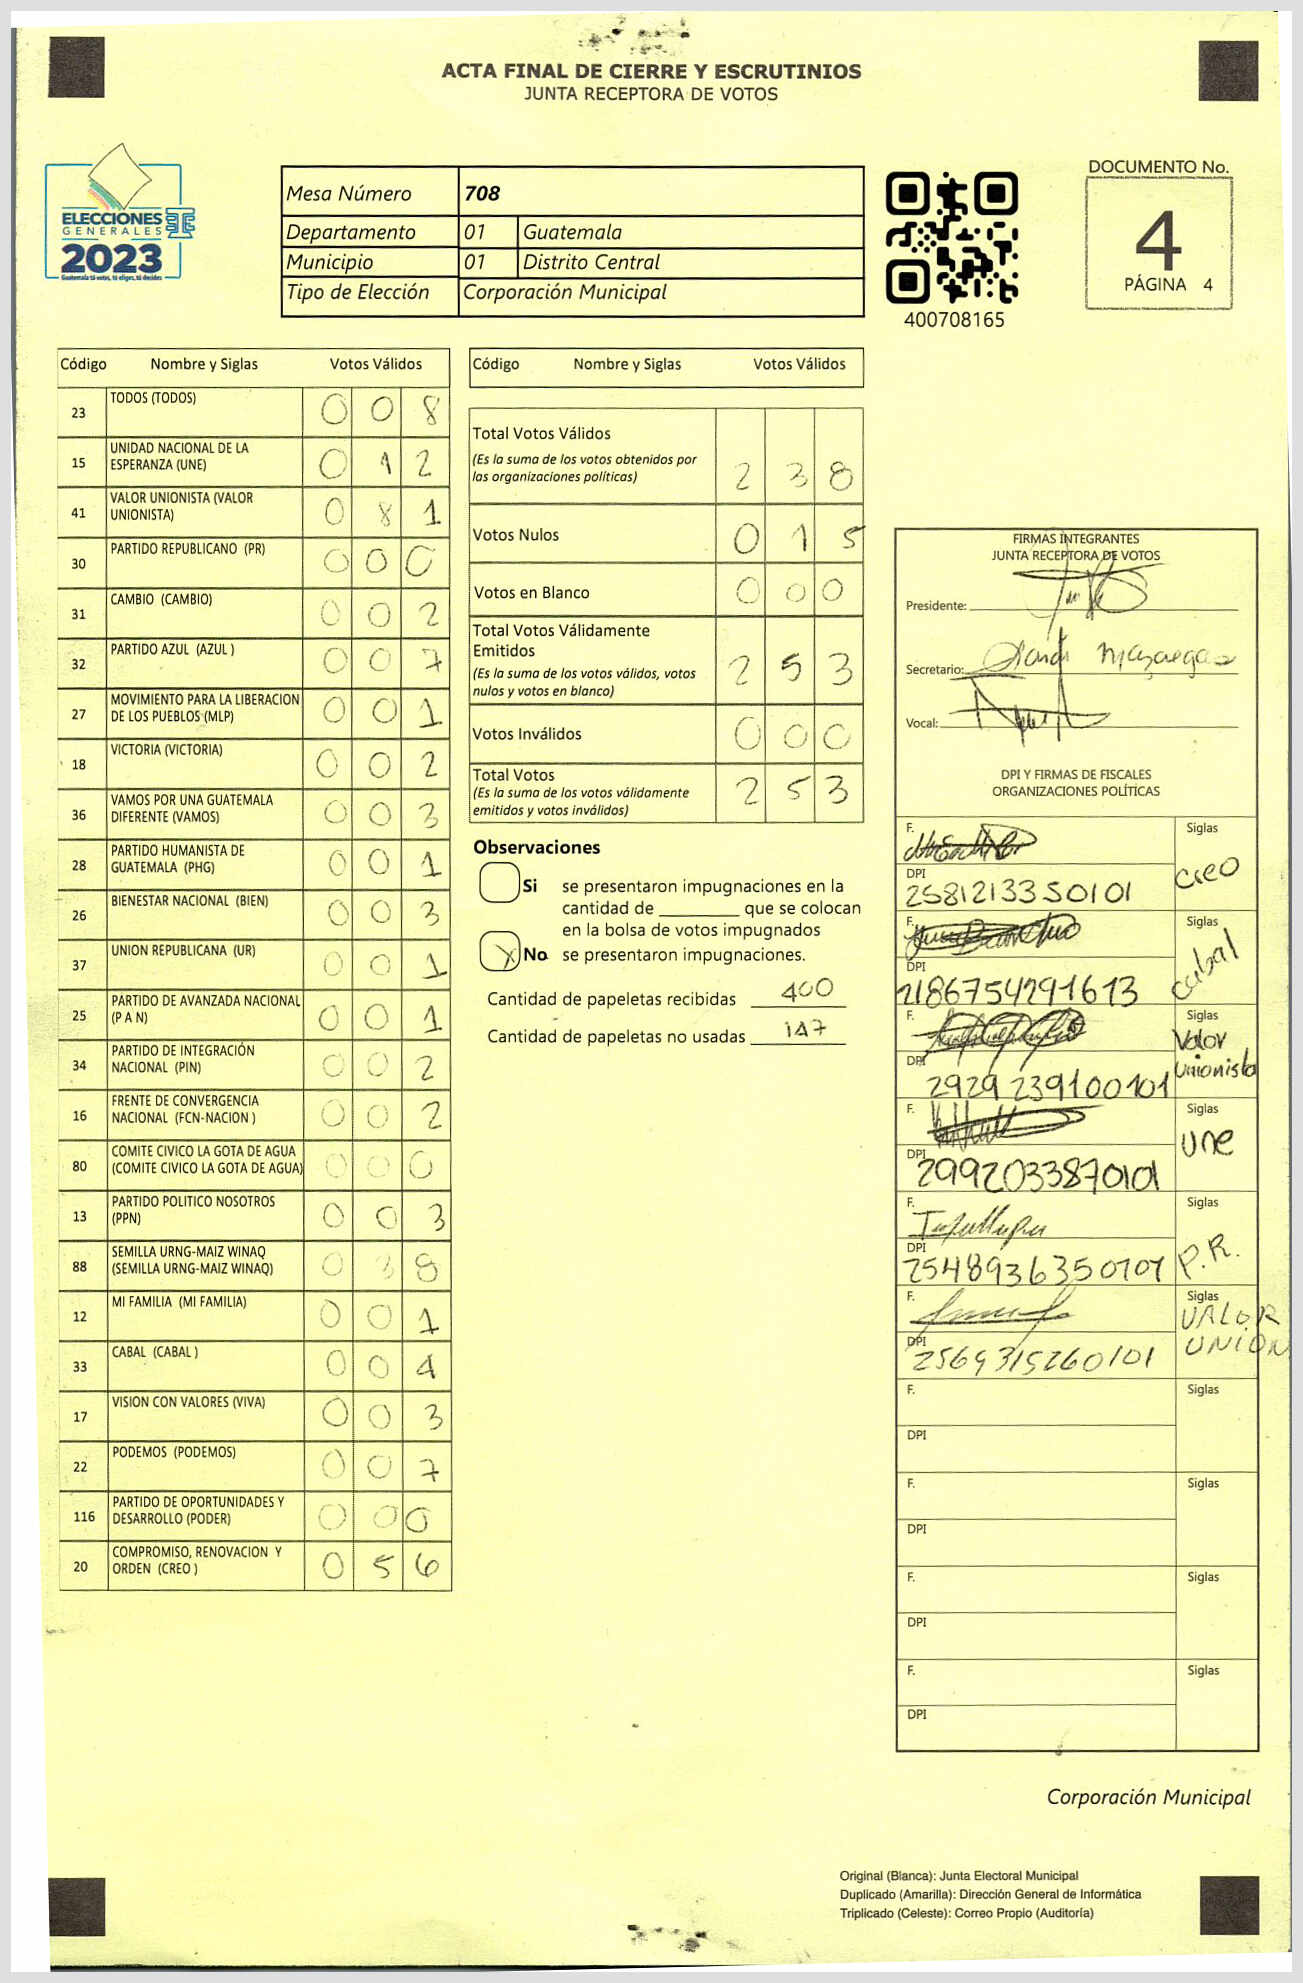 ACTA FINAL DE CIERRE Y ESCRUTINIOS
JUNTA RECEPTORA DE VOTOS
ELECCIONES
GENERALES
2023
Guatemala tú votas, tú eliges, tú decides
Mesa Número 708
Departamento 01 Guatemala
Municipio 01 Distrito Central
Tipo de Elección Corporación Municipal
400708165
DOCUMENTO No.
4
PÁGINA 4
Código Nombre y Siglas Votos Válidos
23 TODOS (TODOS) 0 0 8
15 UNIDAD NACIONAL DE LA
ESPERANZA (UNE) 0 1 2
41 VALOR UNIONISTA (VALOR
UNIONISTA) 0 8 1
30 PARTIDO REPUBLICANO (PR) 0 0 0
31 CAMBIO (CAMBIO) 0 0 2
32 PARTIDO AZUL (AZUL ) 0 0 7
27 MOVIMIENTO PARA LA LIBERACION
DE LOS PUEBLOS (MLP) 0 0 1
18 VICTORIA (VICTORIA) 0 0 2
36 VAMOS POR UNA GUATEMALA
DIFERENTE (VAMOS) 0 0 3
28 PARTIDO HUMANISTA DE
GUATEMALA (PHG) 0 0 1
26 BIENESTAR NACIONAL (BIEN) 0 0 3
37 UNION REPUBLICANA (UR) 0 0 1
25 PARTIDO DE AVANZADA NACIONAL
(P A N) 0 0 1
34 PARTIDO DE INTEGRACIÓN
NACIONAL (PIN) 0 0 2
16 FRENTE DE CONVERGENCIA
NACIONAL (FCN-NACION ) 0 0 2
80 COMITE CIVICO LA GOTA DE AGUA
(COMITE CIVICO LA GOTA DE AGUA) 0 0 0
13 PARTIDO POLITICO NOSOTROS
(PPN) 0 0 3
88 SEMILLA URNG-MAIZ WINAQ
(SEMILLA URNG-MAIZ WINAQ) 0 3 8
12 MI FAMILIA (MI FAMILIA) 0 0 1
33 CABAL (CABAL ) 0 0 4
17 VISION CON VALORES (VIVA) 0 0 3
22 PODEMOS (PODEMOS) 0 0 7
116 PARTIDO DE OPORTUNIDADES Y
DESARROLLO (PODER) 0 0 0
20 COMPROMISO, RENOVACION Y
ORDEN (CREO ) 0 5 6
Código Nombre y Siglas Votos Válidos
Total Votos Válidos
(Es la suma de los votos obtenidos por
las organizaciones políticas) 2 3 8
Votos Nulos 0 1 5
Votos en Blanco 0 0 0
Total Votos Válidamente
Emitidos
(Es la suma de los votos válidos, votos
nulos y votos en blanco) 2 5 3
Votos Inválidos 0 0 0
Total Votos
(Es la suma de los votos válidamente
emitidos y votos inválidos) 2 5 3
Observaciones
Si se presentaron impugnaciones en la
cantidad de ________ que se colocan
en la bolsa de votos impugnados
X No se presentaron impugnaciones.
Cantidad de papeletas recibidas 400
Cantidad de papeletas no usadas 147
FIRMAS INTEGRANTES
JUNTA RECEPTORA DE VOTOS
Presidente:
Secretario:
Vocal:
DPI Y FIRMAS DE FISCALES
ORGANIZACIONES POLÍTICAS
F. Siglas
creo
DPI
2581213350101
F. Siglas
cabal
DPI
2186754291613
F. Siglas
Valor
Unionista
DPI
2929239100101
F. Siglas
une
DPI
2992033870101
F. Siglas
P.R.
DPI
2548936350101
F. Siglas
VALOR
UNION
DPI
2569315260101
F. Siglas
DPI
F. Siglas
DPI
F. Siglas
DPI
F. Siglas
DPI
Corporación Municipal
Original (Blanca): Junta Electoral Municipal
Duplicado (Amarilla): Dirección General de Informática
Triplicado (Celeste): Correo Propio (Auditoría)